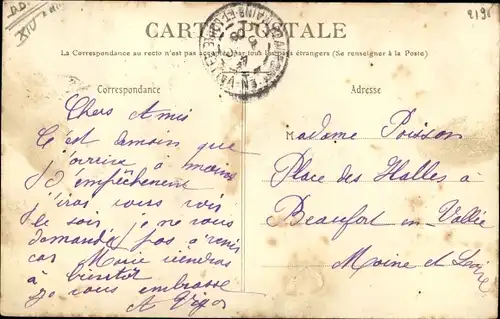 D.D.
2198
CARTE POSTALE
La Correspondance au recto n'est pas acceptée par tous les pays étrangers (Se renseigner à la Poste)
Correspondance
Adresse
Chers Amis
C est demain que
j'arrive à moins
d'empêchement
j'irai vous voir
le soir je ne vous
demande pas à venir
car Marie viendras
à bientôt
je vous embrasse
Madame Poisson
Place des Halles à
Beaufort en Vallée
Maine et Loire